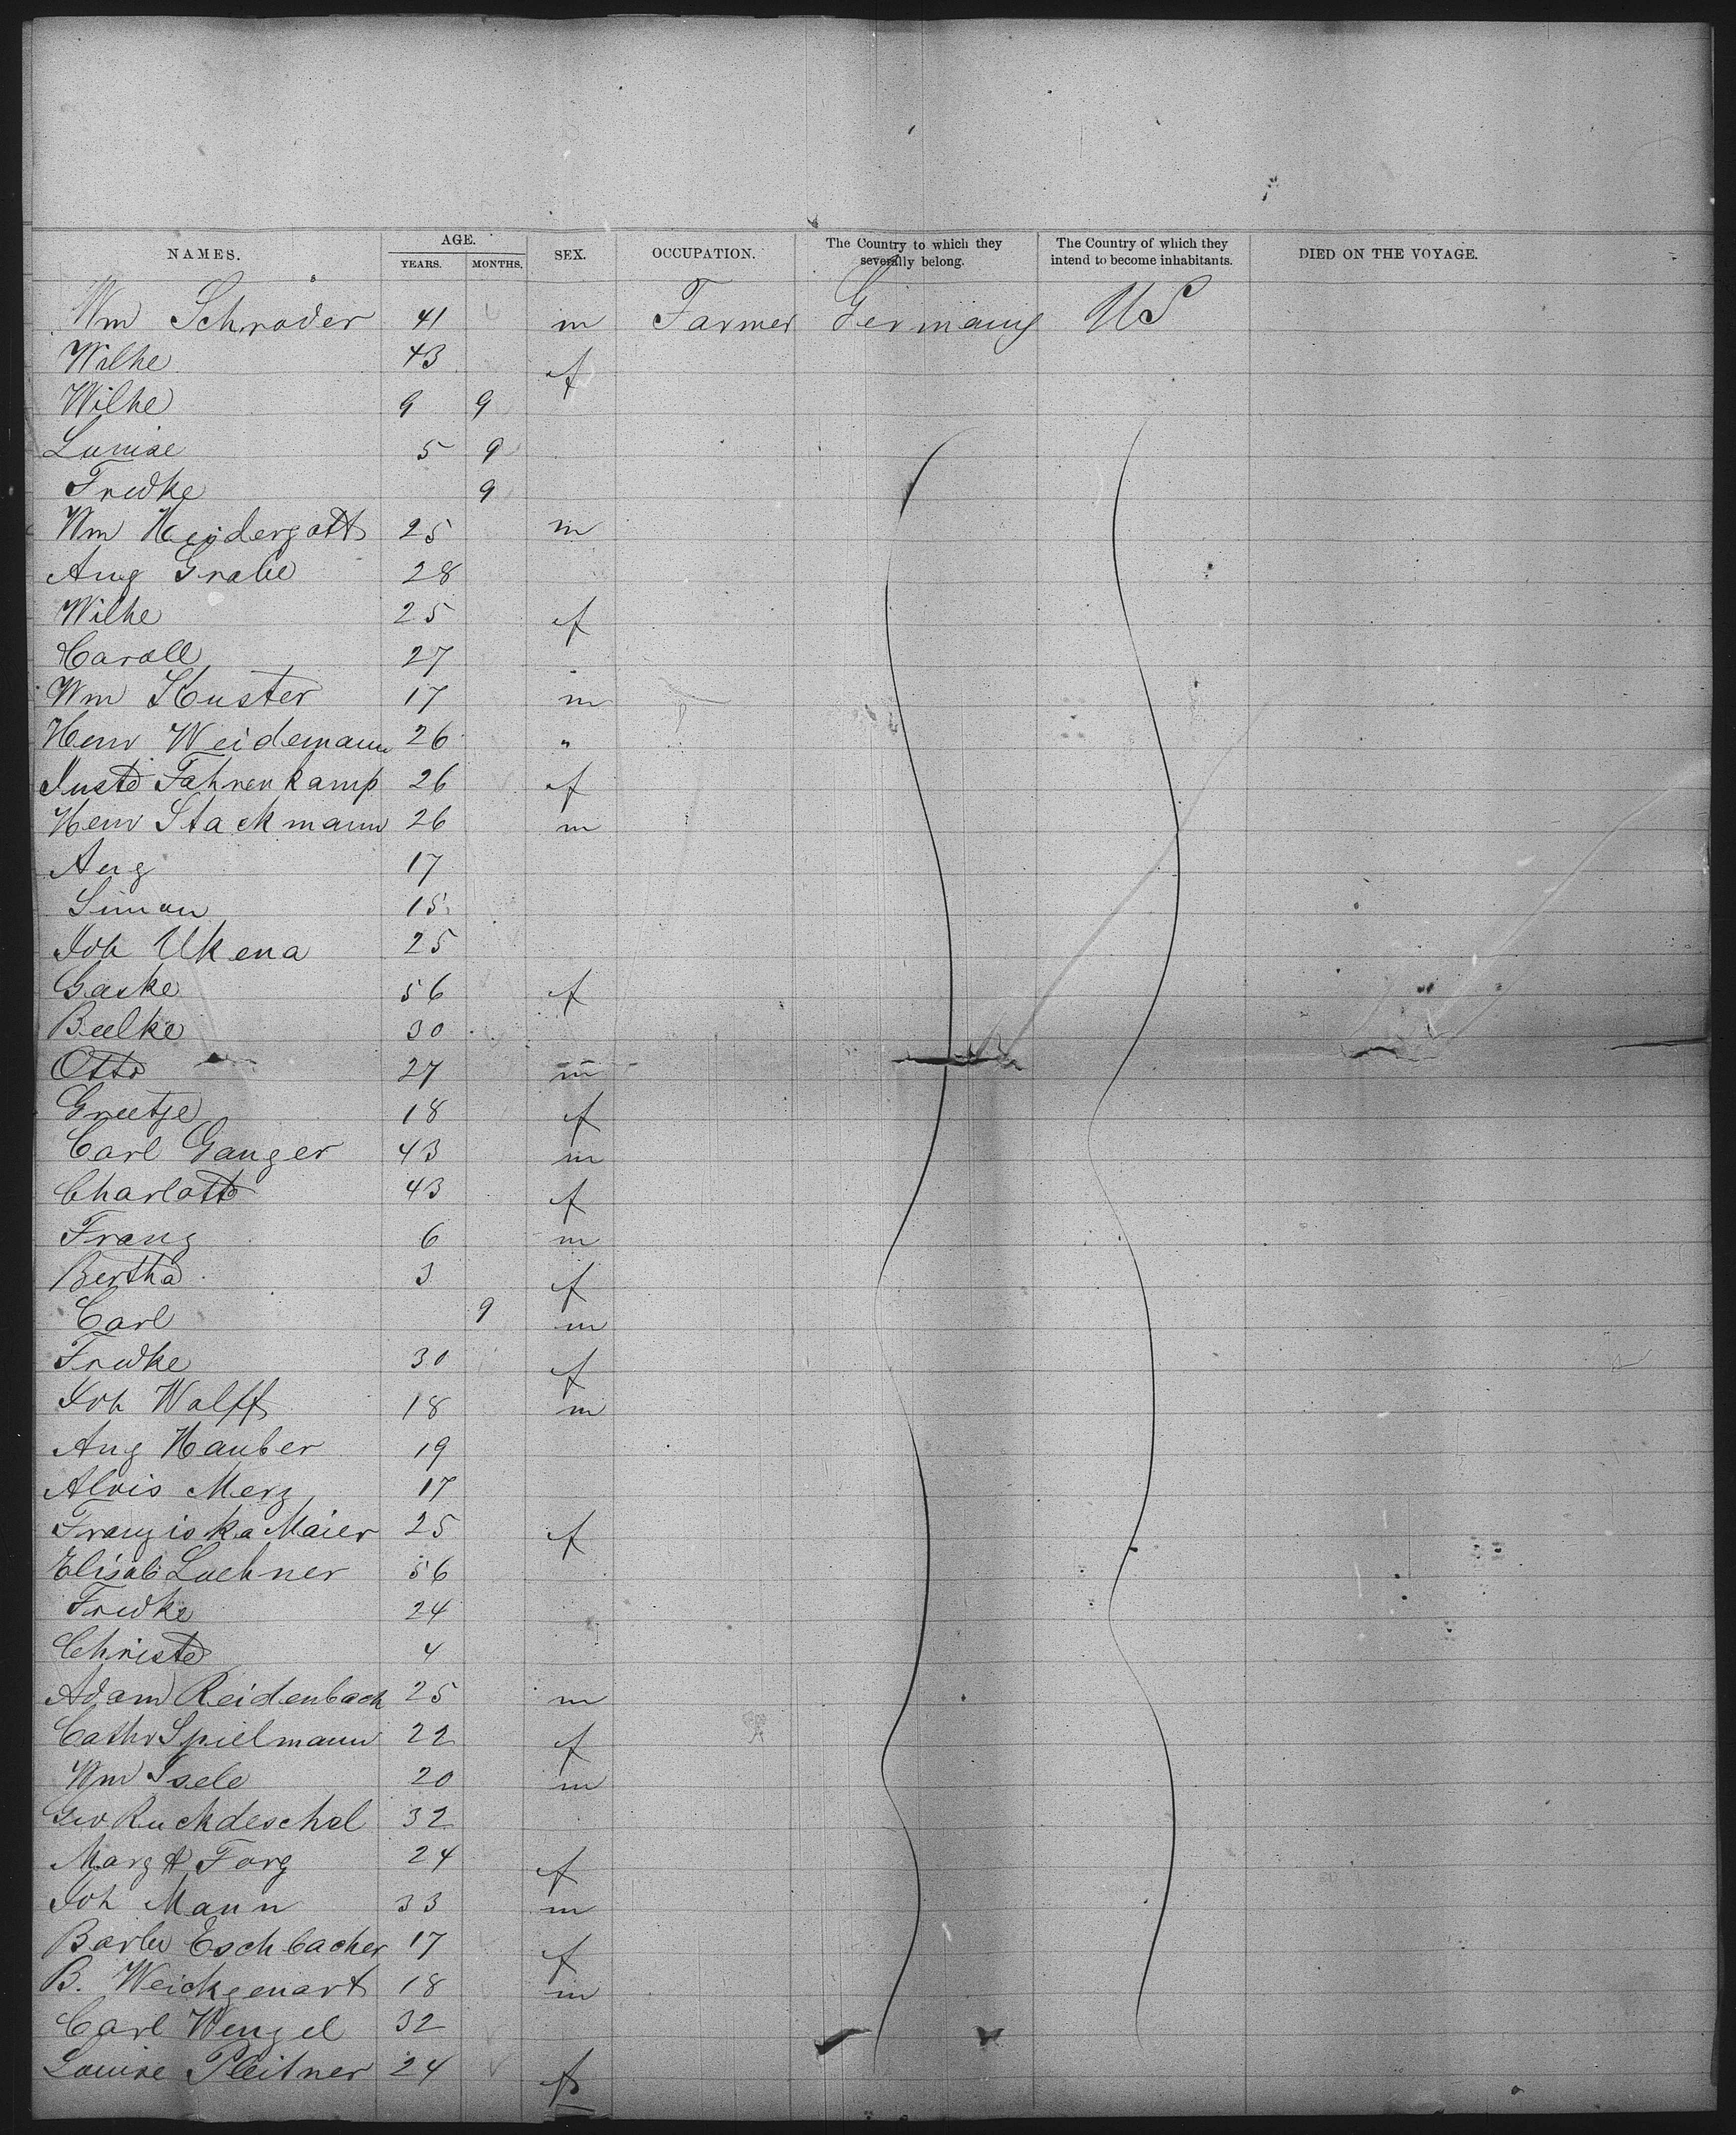 NAMES. AGE. SEX. OCCUPATION. The Country to which they severally belong. The Country of which they intend to become inhabitants. DIED ON THE VOYAGE.
YEARS. MONTHS.
Wm Schroder 41 m Farmer Germany US
Wilhe 43 f
Wilhe 9 9
Luise 5 9
Fredke 9
Wm Heidergott 25 m
Aug Grabe 28
Wilhe 25 f
Caroll 27
Wm Huster 17 m
Henr Weidemann 26 "
Juste Fahrenkamp 26 f
Henr Stackmann 26 m
Aug 17
Simon 15
Joh Ukena 25
Gaske 56 f
Beelke 30
Otto 27 m
Greetje 18 f
Carl Ganger 43 m
Charlotte 43 f
Franz 6 m
Bertha 3 f
Carl 9 m
Fredke 30 f
Joh Wolff 18 m
Aug Hauber 19
Alois Merz 17
Franziska Maier 25 f
Elisab Lochner 56
Fredke 24
Christe 4
Adam Reidenbach 25 m
Cathr Spielmann 22 f
Wm Isele 20 m
Geo Ruckdeschel 32
Margt Forg 24 f
Joh Mann 33 m
Barbr Eschbacher 17 f
B. Weickgenart 18 m
Carl Wenzel 32
Louise Pleitner 24 f